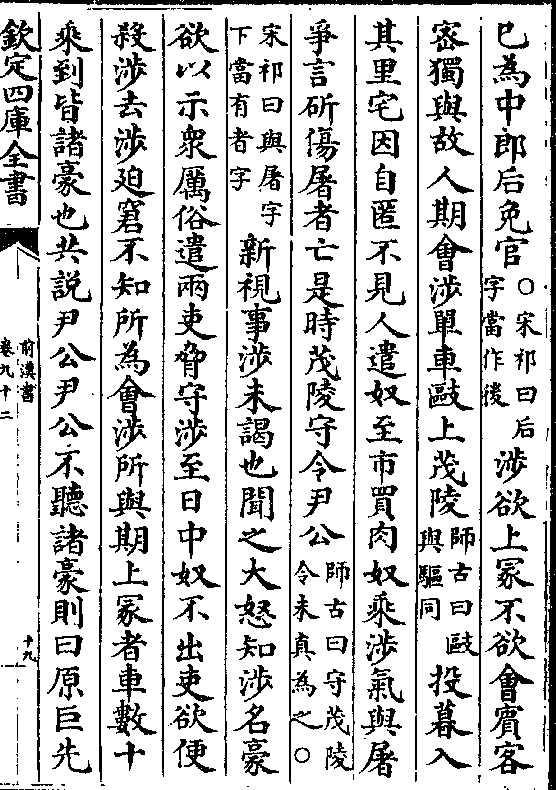 已為中郎后免官○宋祁曰后字當作後涉欲上冢不欲會賓客
宻獨與故人期會涉單車敺上茂陵師古曰敺與驅同投暮入
其里宅因自匿不見人遣奴至市買肉奴乘涉氣與屠
爭言斫傷屠者亡是時茂陵守令尹公師古曰守茂陵令未真為之○
宋祁曰與屠字下當有者字新視事涉未謁也聞之大怒知涉名豪
欲以示衆厲俗遣兩吏脅守涉至日中奴不出吏欲便
殺涉去涉廹窘不知所為會涉所與期上冢者車數十
乘到皆諸豪也共說尹公尹公不聽諸豪則曰原巨先
欽定四庫全書
前漢書
卷九十二
十九